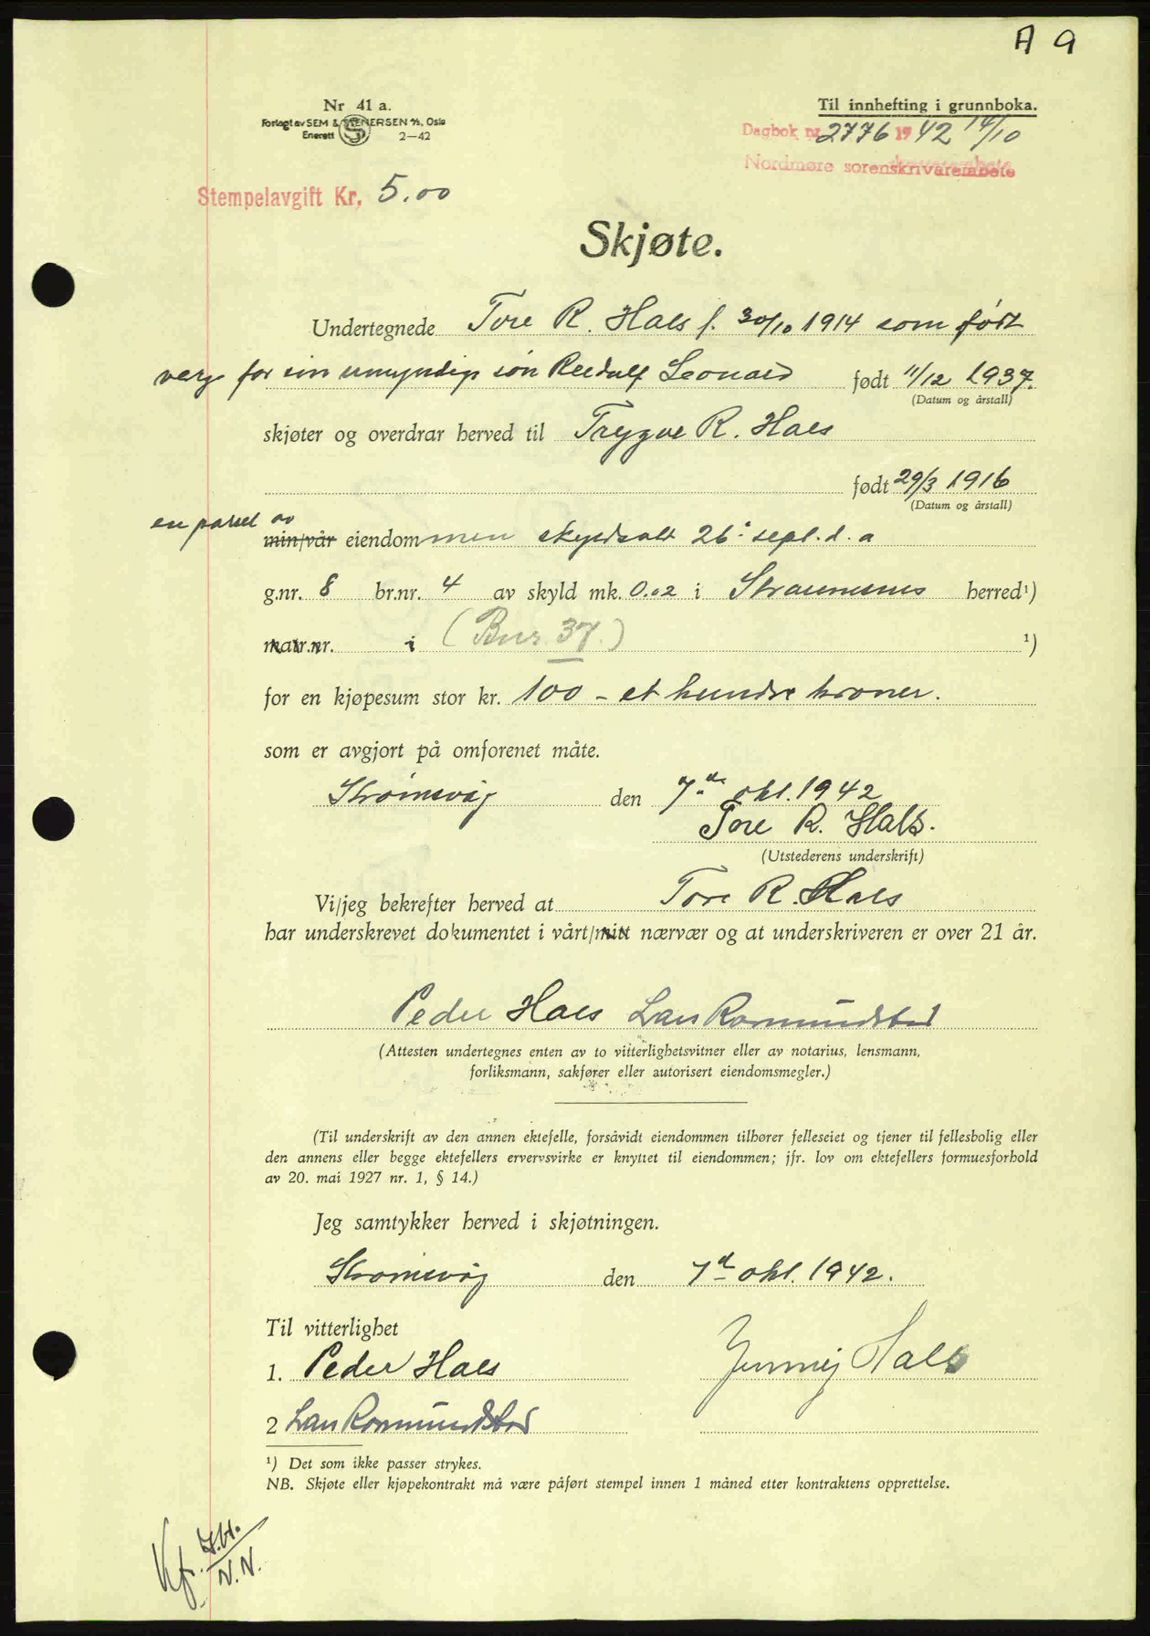 A 9
Nr 41 a.
Forlagt av SEM & STENERSEN A/S, Oslo
Enerett 2-42
Til innhefting i grunnboka.
Dagbok nr. 2776 1942 14/10
Nordmøre sorenskriverembete
Stempelavgift Kr. 5.00
Skjøte.
Undertegnede Tore R. Hals f. 30/10 1914 som født
verge for sin umyndige søn Leonard født 11/12 1937.
(Datum og årstall)
skjøter og overdrar herved til Trygve R. Hals
født 29/3 1916
(Datum og årstall)
en parsel av
min/vår eiendommen skyldsatt 26. sept. d. a
g.nr. 8 br.nr. 4 av skyld mk. 0.02 i Straumsnes herred¹)
matr.nr. i (Bnr. 37.) ¹)
for en kjøpesum stor kr. 100 - et hundre kroner.
som er avgjort på omforenet måte.
Strømsvåg den 7de okt. 1942
Tore R. Hals.
(Utstederens underskrift)
Vi/jeg bekrefter herved at Tore R. Hals
har underskrevet dokumentet i vårt/mitt nærvær og at underskriveren er over 21 år.
Peder Hals Lars Romundstad
(Attesten undertegnes enten av to vitterlighetsvitner eller av notarius, lensmann,
forliksmann, sakfører eller autorisert eiendomsmegler.)
(Til underskrift av den annen ektefelle, forsåvidt eiendommen tilhører felleseiet og tjener til fellesbolig eller
den annens eller begge ektefellers ervervsvirke er knyttet til eiendommen; jfr. lov om ektefellers formuesforhold
av 20. mai 1927 nr. 1, § 14.)
Jeg samtykker herved i skjøtningen.
Strømsvåg den 7d okt. 1942.
Til vitterlighet
1. Peder Hals Jenny Hals
2 Lars Romundstad
¹) Det som ikke passer strykes.
NB. Skjøte eller kjøpekontrakt må være påført stempel innen 1 måned etter kontraktens opprettelse.
Kf. J.H.
N.N.